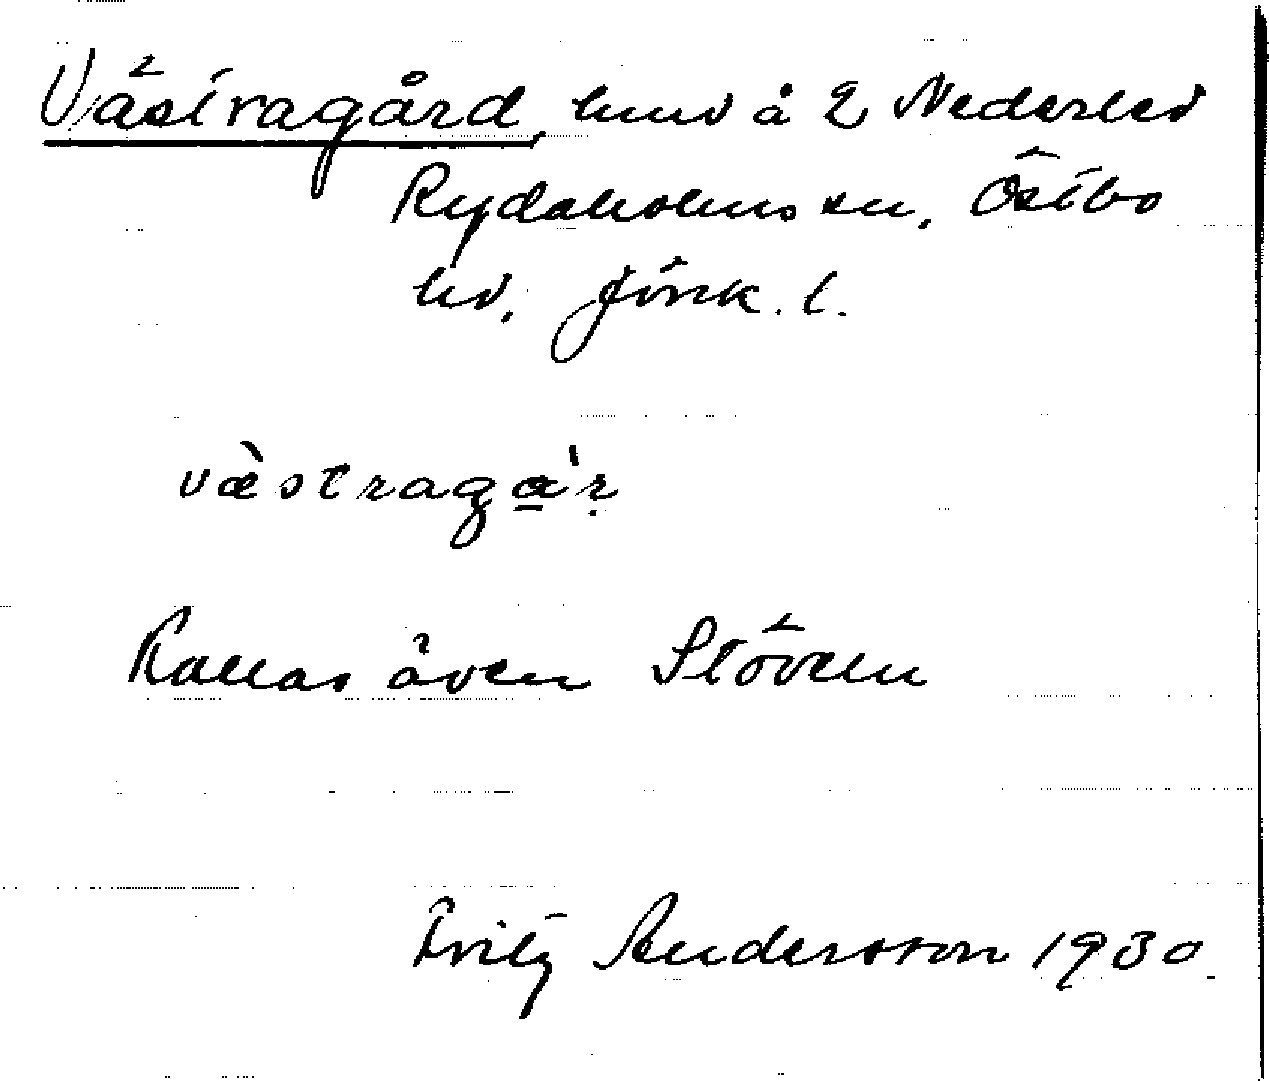 Västragård, hmd å 2 Nederled
Rydaholms sn, Östbo
hd, Jönk. l.
væ̀straga̱'ṛ
Kallas även Stöveln
Fritz Andersson 1930